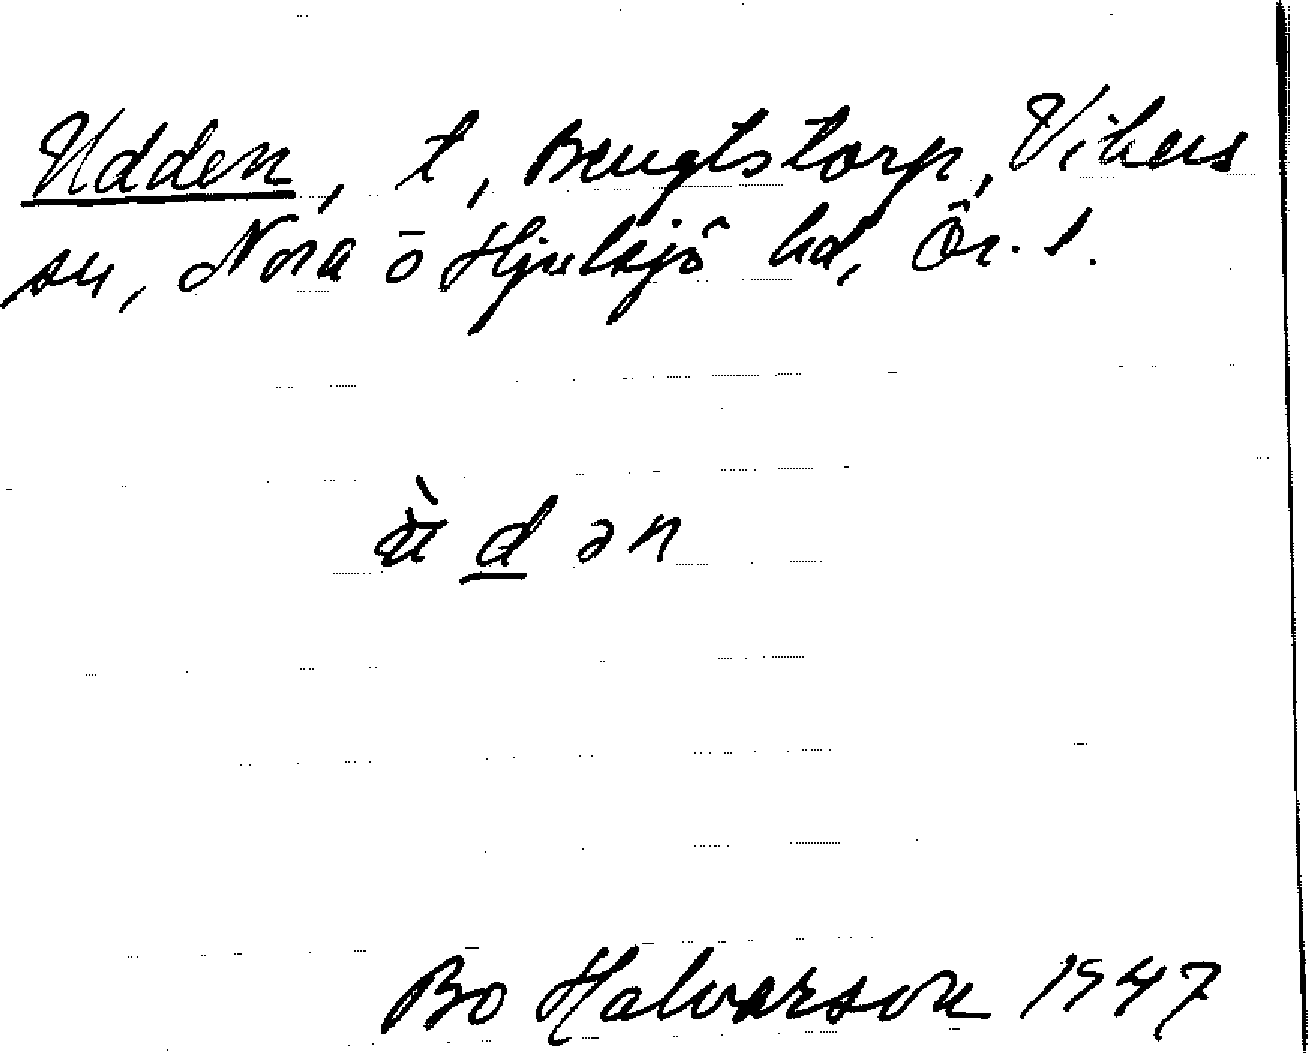 Udden, t, Bengtstorp, Vikers
sn, Nora o Hjulsjö hd, Ör. l.
ɯ̀ d ə n
Bo Halvarson 1947